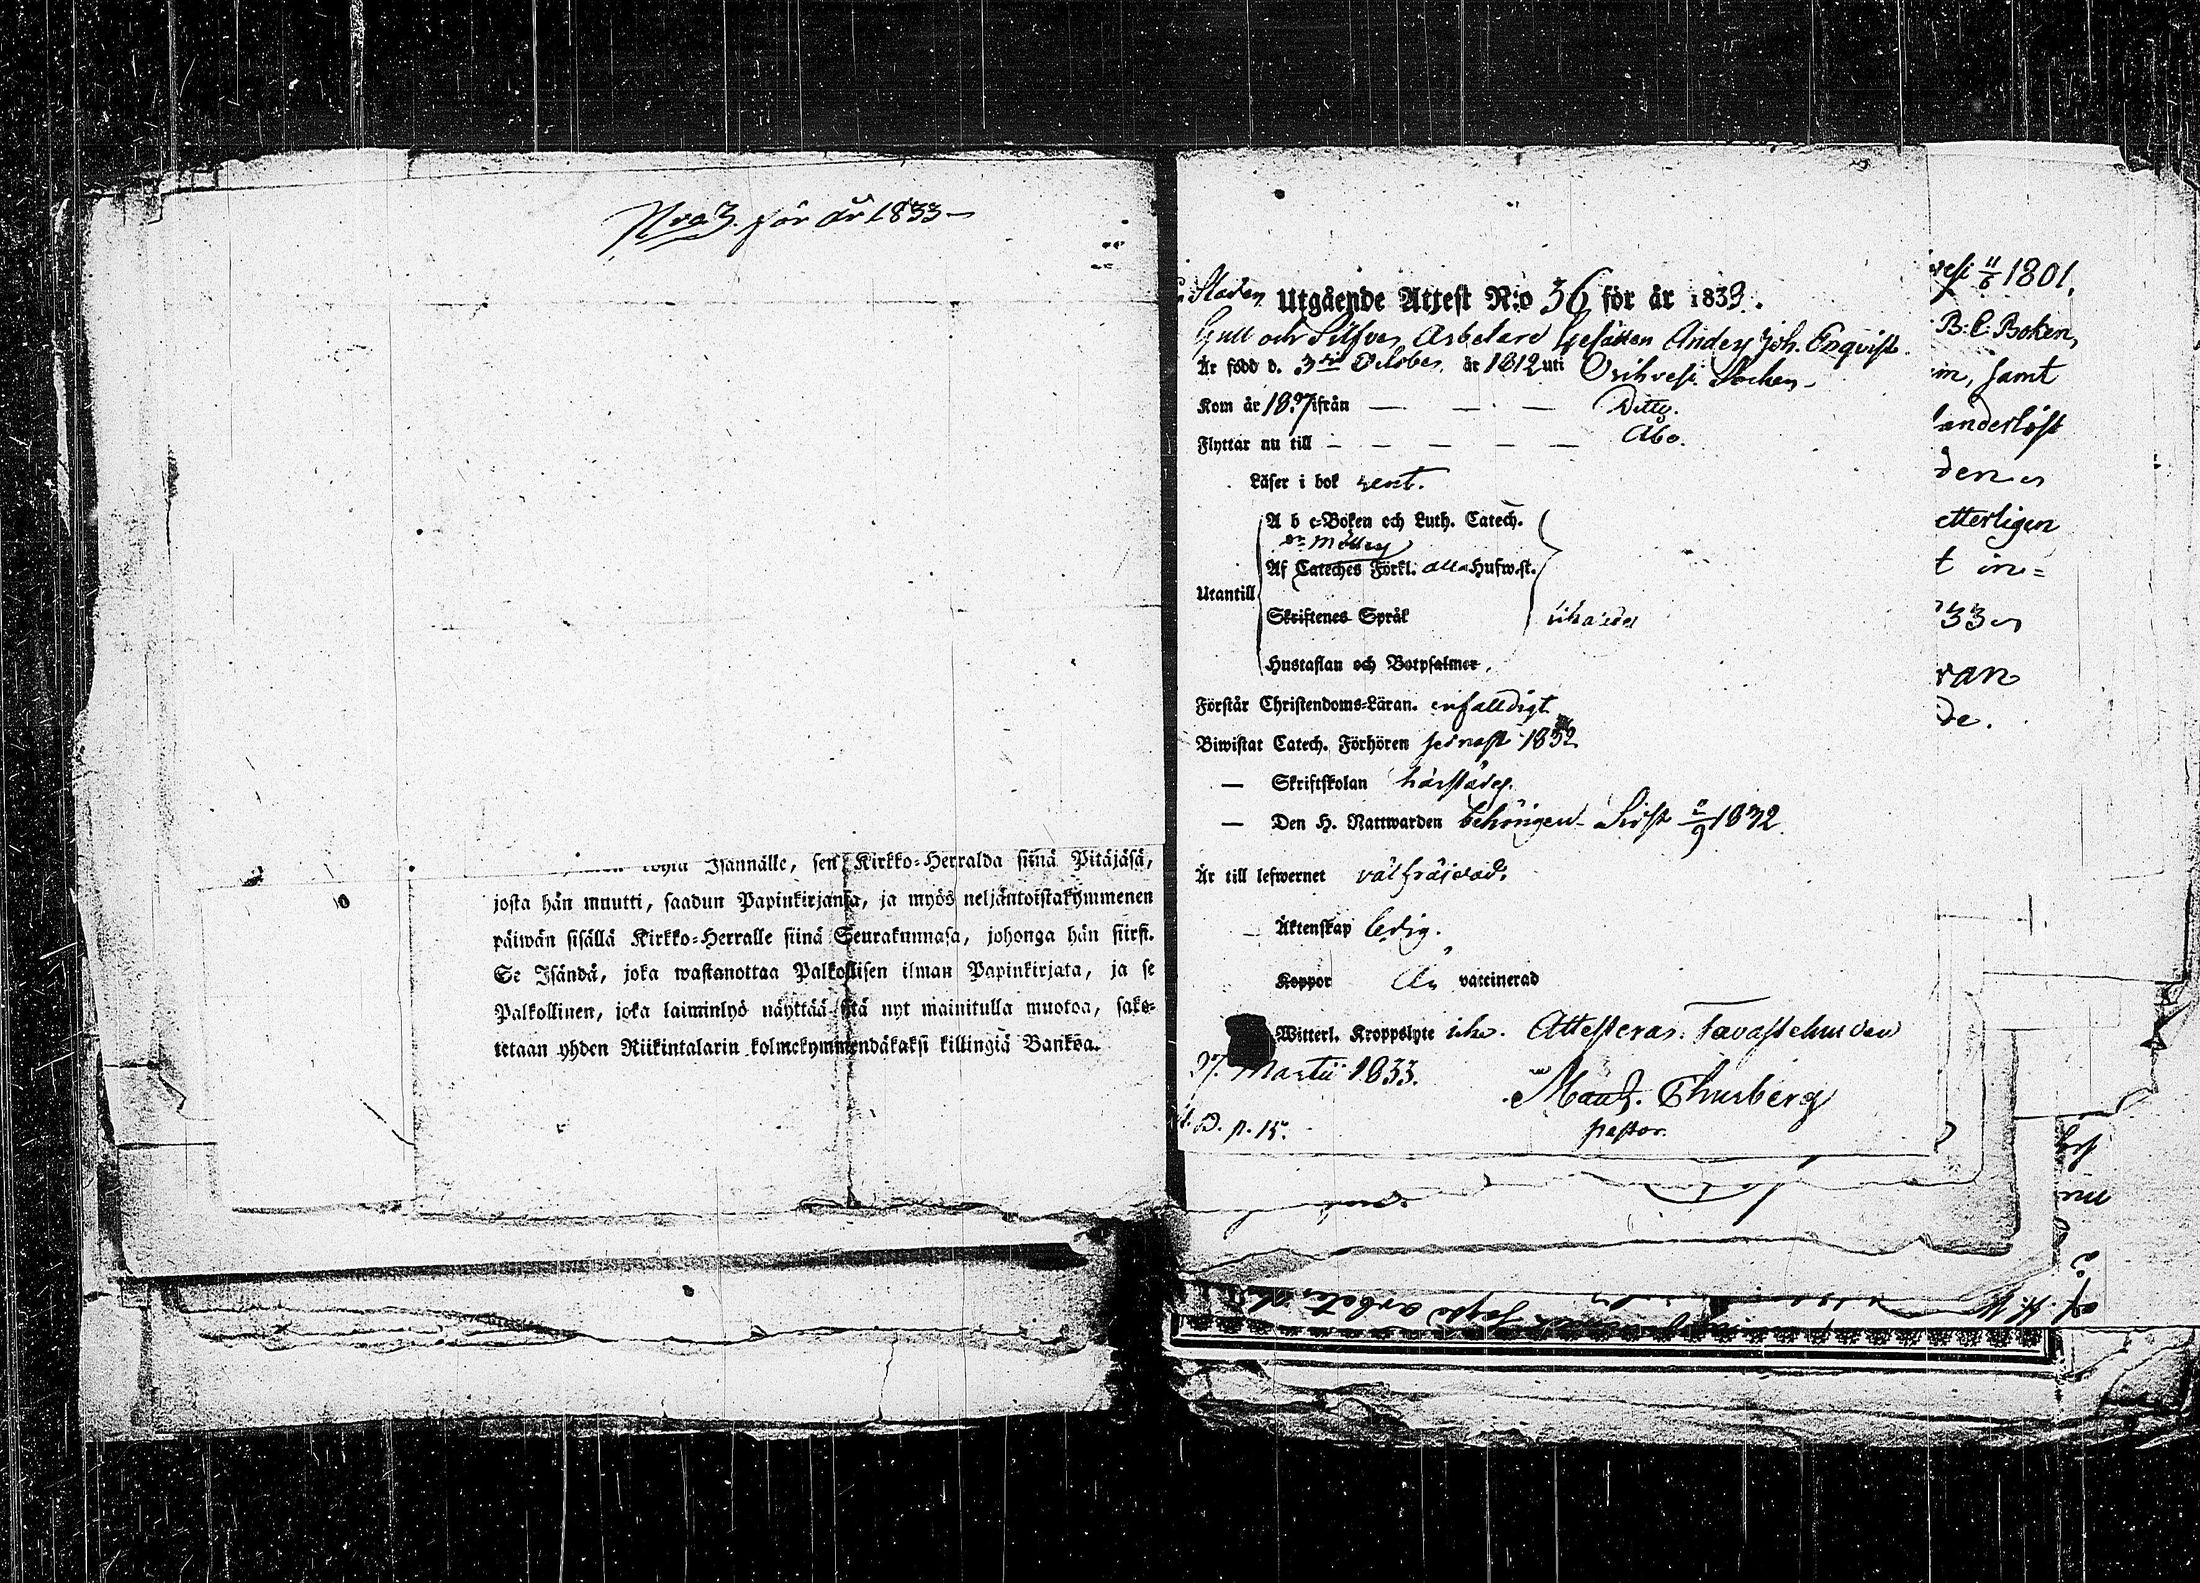 Nro 3. för år 1833 –
Isannälle, sen Kirkko-Herralda siinä Pitäjäsä,
josta hän muutti, saadun Papinkirjansa, ja myös neljäntoistakymmenen
päiwän sisällä Kirkko-Herralle siinä Seurakunnasa, johonga hän siirsi.
Se Isändä, joka wastanottaa Palkollisen ilman Papinkirjata, ja se
Palkollinen, joka laiminlyö näyttää sitä nyt mainitulla muotoa, sako-
tetaan yhden Riikintalarin kolmekymmendäkaksi killingiä Bankoa.
Staden Utgående Attest N:o 36 för år 1833.
Gull och Silfver Arbetare Gesällen Anders Joh. Enqvist
Är född d. 3 October år 1812 uti Orihvesi Socken –
Kom år 18 ifrån — — — Ditto.
Flyttar nu till — — — — — Åbo.
Läser i bok rent.
A b c-Boken och Luth. Catech.
Af Cateches Förkl. alla Hufwst.
Utantill
Skriftenes Språk
Hustaflan och Botpsalmer,
Förstår Christendoms-Läran. enfalldigt
Biwistat Catech. Förhören sednast 1832
— Skriftskolan härstädes.
— Den H. Nattwarden behörigen. Sist 2/9 1832.
Är till lefwernet välfräjdad.
— Äktenskap ledig.
Koppor Är vaccinerad
Witterl. Kroppslyte icke. Attesteras. Tavastehus den
27. Martii 1833.
Thurberg
p. 15. pastor.
vesi 11/6 1801.
B. C. Boken,
samt
anderlöst
den
etterligen
t in=
33
ran
de.